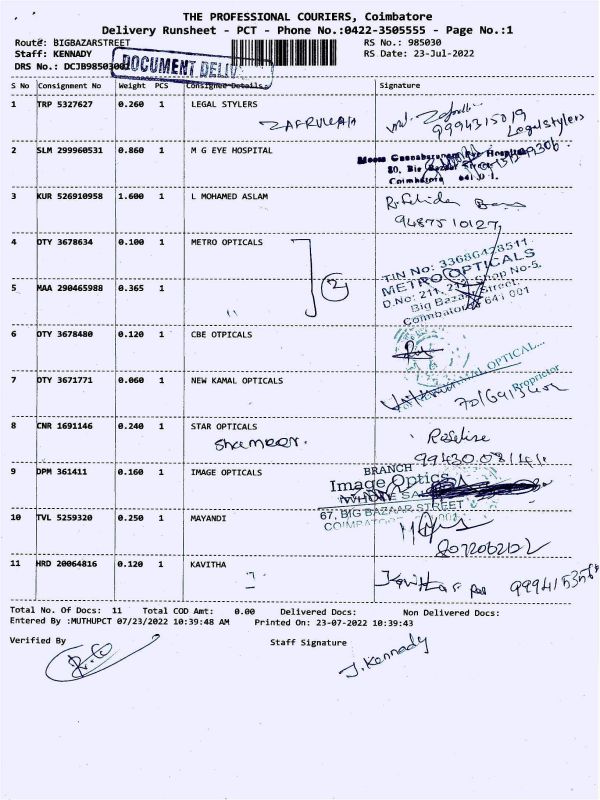 THE PROFESSIONAL COURIERS, Coimbatore
Delivery Runsheet - PCT - Phone No.:0422-3505555 - Page No.:1
Route: BIGBAZARSTREET
RS No.: 985030
Staff: KENNADY
RS Date: 23-Jul-2022
DRS No.: DCJB985030001
DOCUMENT DELIV
S No Consignment No Weight PCS Consignee Details Signature
1 TRP 5327627 0.260 1 LEGAL STYLERS
ZAFRULLAH
9994315019
Legal stylers
2 SLM 299960531 0.860 1 M G EYE HOSPITAL
80, Big Bazaar Street
Coimbatore 641 001.
3 KUR 526910958 1.600 1 L MOHAMED ASLAM
9487510127
4 OTY 3678634 0.100 1 METRO OPTICALS
TIN No: 33686428511
METRO OPTICALS
D.No: 211, 212 Shop No-5,
Big Bazaar Street,
Coimbatore 641 001
2
5 MAA 290465988 0.365 1 "
6 OTY 3678480 0.120 1 CBE OTPICALS
7 OTY 3671771 0.060 1 NEW KAMAL OPTICALS
OPTICAL
Proprietor
8 CNR 1691146 0.240 1 STAR OPTICALS
Shameer.
9 DPM 361411 0.160 1 IMAGE OPTICALS
BRANCH
Image Optics
WHOLE SA
67, BIG BAZAAR STREET
10 TVL 5259320 0.250 1 MAYANDI
8072062122
11 HRD 20064816 0.120 1 KAVITHA
Kavitha
Total No. Of Docs: 11 Total COD Amt: 0.00 Delivered Docs: Non Delivered Docs:
Entered By :MUTHUPCT 07/23/2022 10:39:48 AM Printed On: 23-07-2022 10:39:43
Verified By Staff Signature
J. Kennady